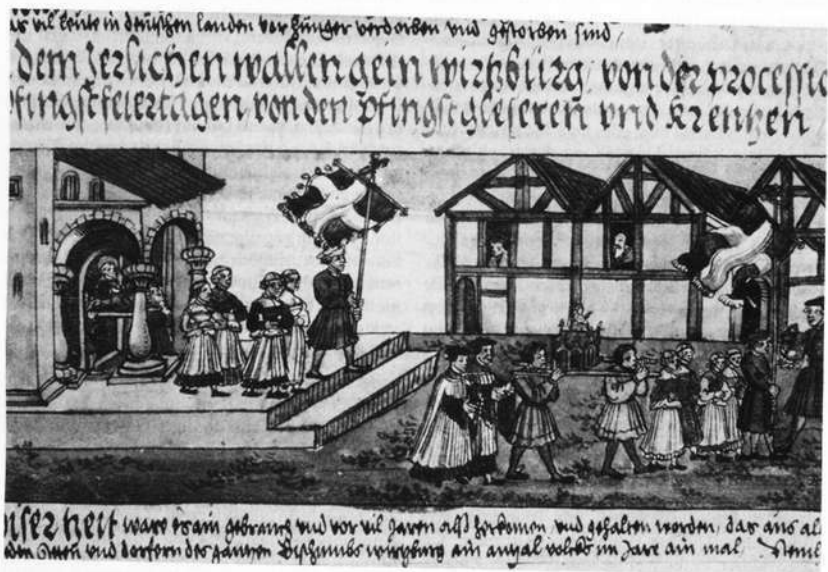 vil leute in deutschen landen vor hunger verdorben vnd gestorben sind,
dem Jerlichen wallen gein wirtzburg, von der processio
pfingstfeiertagen, von den pfingstgleseren vnd Kreutzen,
nser zeit ware es ain gebrauch vnd vor vil Jaren alß herkomen vnd gehalten worden, das aus al
vnd dorfern des gantzen Bischumbs wurtzburg ain antzal volcks im Jare ain mal,